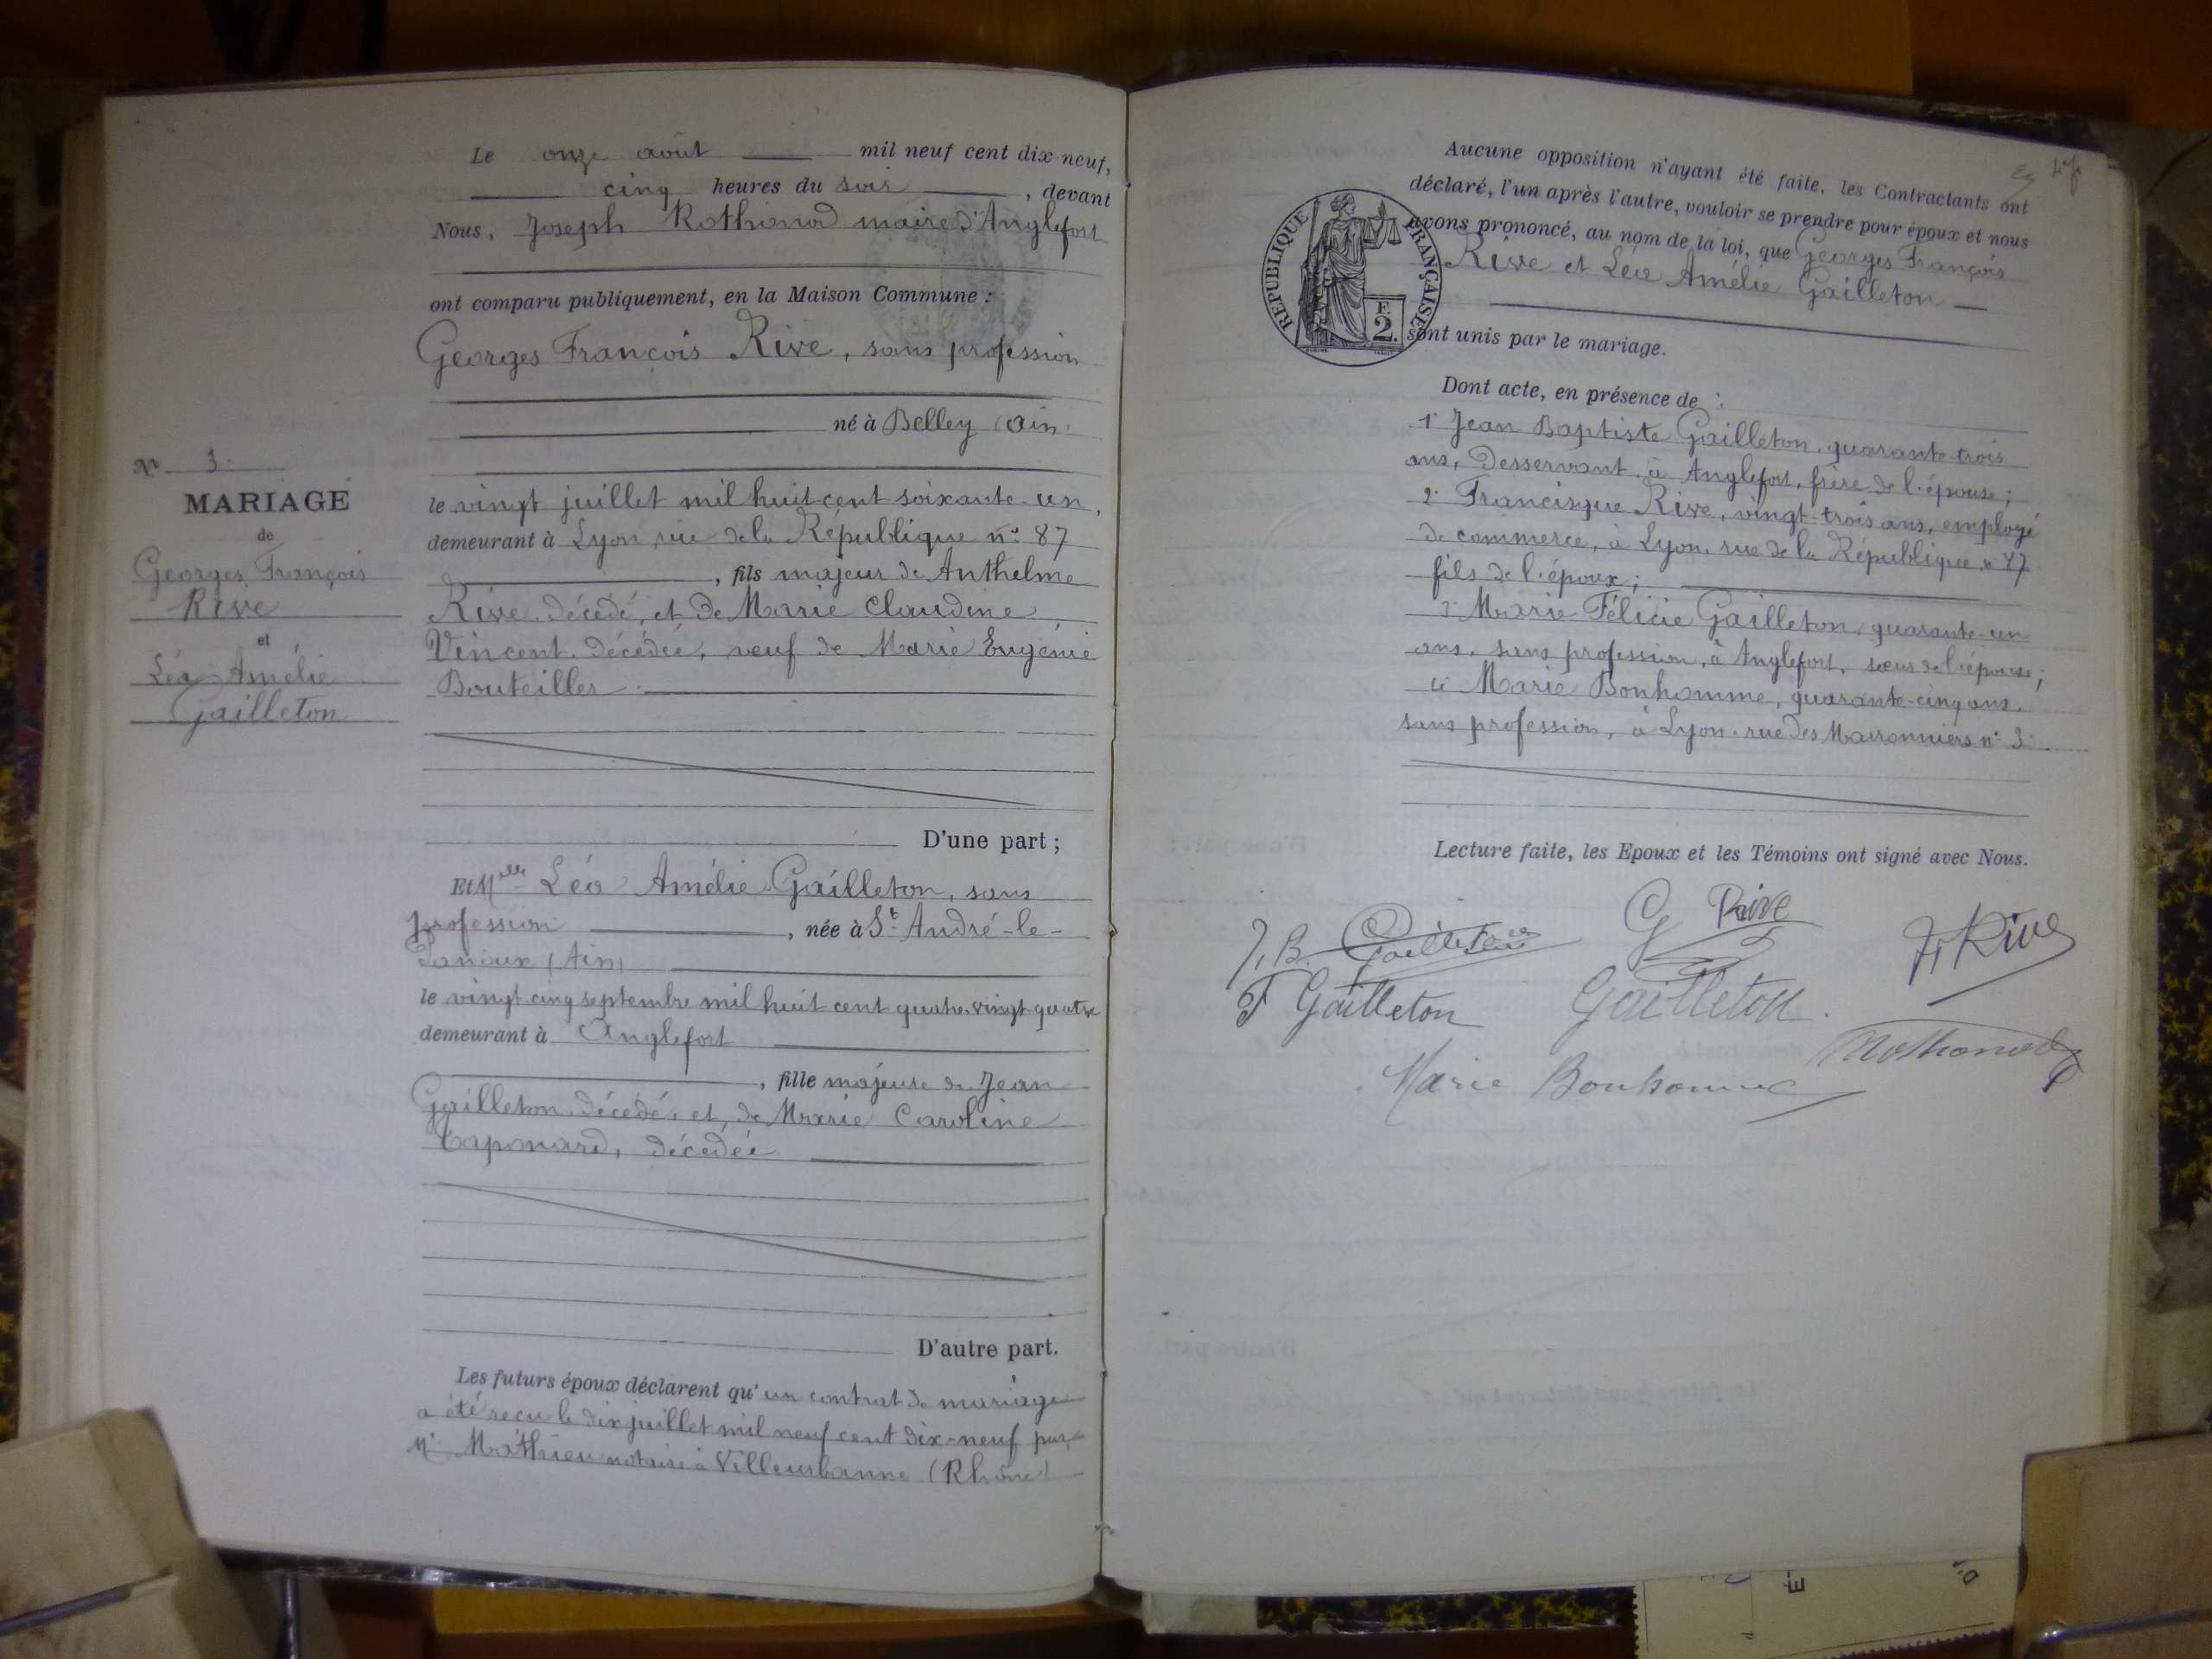 Le onze août mil neuf cent dix neuf,
cinq heures du soir, devant
Nous, Joseph Rothonod maire d'Anglefort
ont comparu publiquement, en la Maison Commune :
Georges François Rive, sans profession
né à Belley (Ain)
le vingt juillet mil huit cent soixante-un,
demeurant à Lyon, rue de la République n° 87
, fils majeur de Anthelme
Rive, décédé, et de Marie Claudine
Vincent, décédée, veuf de Marie Eugénie
Bouteiller.
N° 3.
MARIAGE
de
Georges François
Rive
et
Léa Amélie
Gailleton
D'une part ;
Et Melle Léa Amélie Gailleton, sans
profession, née à St André-le-
Panoux (Ain)
le vingt cinq septembre mil huit cent quatre-vingt-quatre
demeurant à Anglefort
, fille majeure de Jean
Gailleton, décédé, et de Marie Caroline
Caponard, décédée
D'autre part.
Les futurs époux déclarent qu'un contrat de mariage
a été reçu le dix juillet mil neuf cent dix-neuf par
Me Mathieu notaire à Villeurbanne (Rhône)
Aucune opposition n'ayant été faite, les Contractants ont
déclaré, l'un après l'autre, vouloir se prendre pour époux et nous
avons prononcé, au nom de la loi, que Georges François
Rive et Léa Amélie Gailleton
sont unis par le mariage.
RÉPUBLIQUE FRANÇAISE
F.
2.
Dont acte, en présence de :
1° Jean Baptiste Gailleton, quarante-trois
ans, Desservant, à Anglefort, frère de l'épouse ;
2° Francisque Rive, vingt-trois ans, employé
de commerce, à Lyon, rue de la République n° 87
fils de l'époux ;
3° Marie Félicie Gailleton, quarante-un
ans, sans profession, à Anglefort, sœur de l'épouse ;
4° Marie Bonhomme, quarante-cinq ans,
sans profession, à Lyon, rue des Marronniers n° 3
Lecture faite, les Epoux et les Témoins ont signé avec Nous.
J. B. Gailleton
G Rive
F Rive
F Gailleton
Gailleton.
Rothonod
Marie Bonhomme